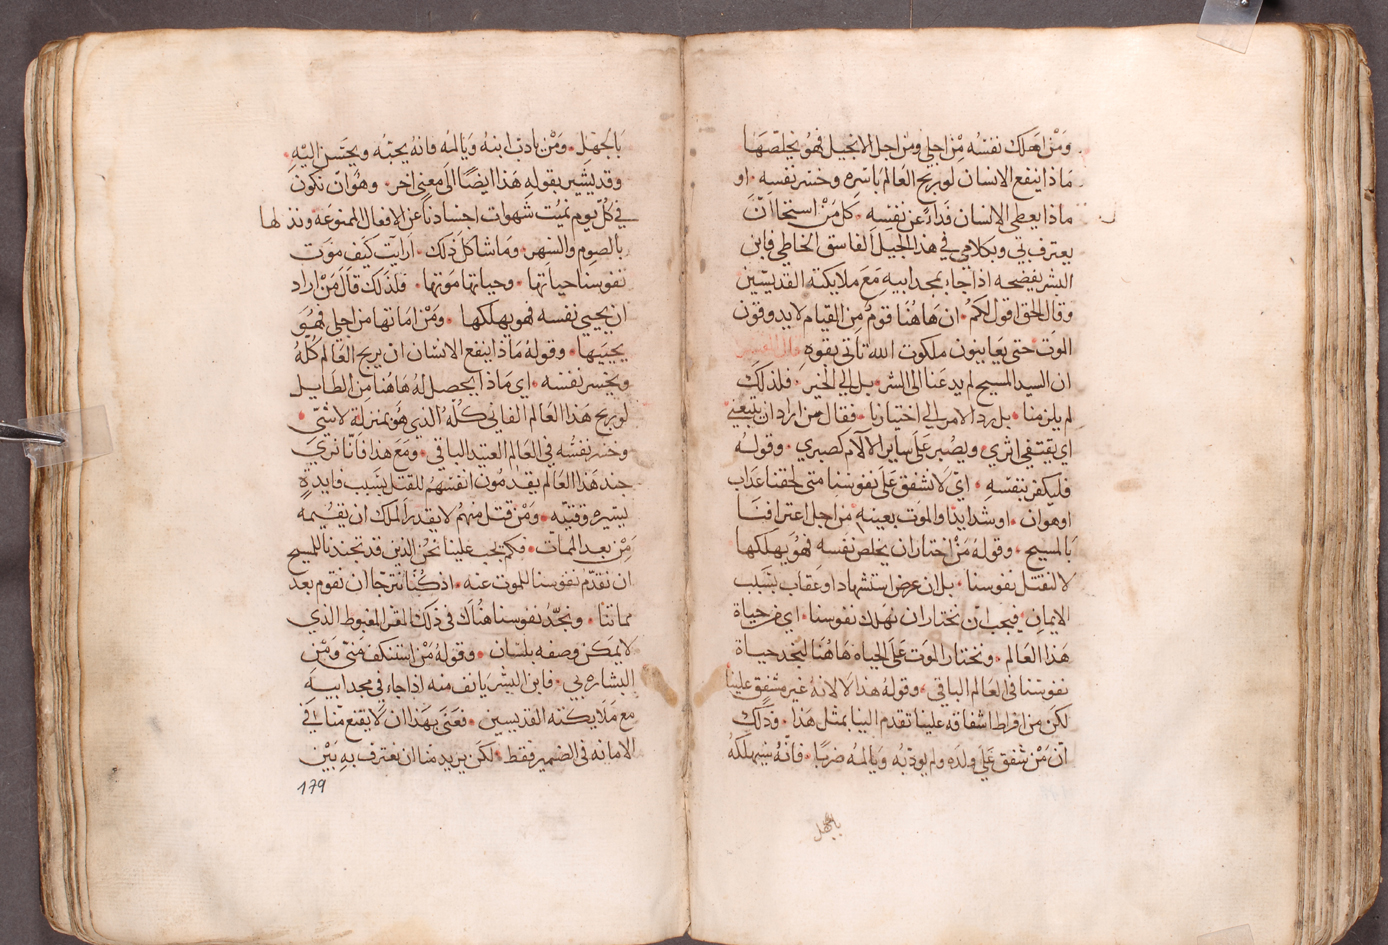 ومن اهلك نفسه من اجلي ومن اجل الانجيل فهو يخلصها
ماذا ينفع الانسان لو ربح العالم باسره وخسر نفسه. او
ماذا يعطى الانسان فداءً عن نفسه. كل من استحا ان
يعترف بي وبكلامي في هذا الجيل الفاسق الخاطي فابن
البشر يفضحه اذا جاء بمجد ابيه مع ملايكته القديسين
وقال الحق اقول لكم. ان هاهنا قوم من القيام لا يدوقون
الموت حتى يعاينون ملكوت الله تاتى بقوه قال المفسر
ان السيد المسيح لم يدعنا الى الشر. بل الى الخير. فلذلك
لم يلزمنا. بل رد الامر الى اختيارنا. فقال من اراد ان يتبعني
اي يقتفي اثري. ويصبر على ساير الالام كصبري. وقوله
فليكفر بنفسه. اي لا تشفق على نفوسنا متى لحقنا عداب
او هوان. او شدايد او الموت بعينه من اجل اعترافنا
بالمسيح. وقوله من اختار ان يخلص نفسه فهو يهلكها
لا لنقتل نفوسنا. بل ان عرض استشهاد او عقاب بسبب
الايمان. فيجب ان نختار ان نهلك نفوسنا. اي من حياة
هذا العالم. ونختار الموت على الحياه هاهنا لنجد حياة
نفوسنا في العالم الباقي. وقوله هذا لا لانه غير مشفق علينا
لكن من افراط اشفاقه علينا تقدم الينا بمثل هذا. وذلك
ان من شفق على ولده ولم يودبه ويالمه ضربًا. فانه سيهلكه
بالجهل
بالجهل. ومن يادب ابنه ويالمه فانه يحبه ويحسن اليه.
وقد يشير بقوله هذا ايضًا الى معنى اخر. وهو ان نكون
في كل يوم نميت شهوات اجسادنا عن الافعال الممنوعه ونذلها
بالصوم والسهر. وما شاكل ذلك. ارايت كيف موت
نفوسنا حياتها. وحياتها موتها. فلذلك قال من اراد
ان يحيي نفسه فهو يهلكها. ومن اماتها من اجلي فهو
يحييها. وقوله ماذا ينفع الانسان ان يربح العالم كله
ويخسر نفسه. اي ماذا يحصل له هاهنا من الطايل
لو ربح هذا العالم الفاني كله الذي هو بمنزلة لا شي.
وخسر نفسه في العالم العتيد الباقي. ومع هذا فانا نرى
جند هذا العالم يقدمون انفسهم للقتل بسبب فايدةٍ
يسيره وقتيه. ومن قتل منهم لا يقدر الملك ان يقيمه
من بعد الممات. فكم يجب علينا نحن الذين قد تجندنا للمسيح
ان نقدم نفوسنا للموت عنه. اذ كنا نترجا ان نقوم بعد
مماتنا. ونجد نفوسنا هناك في ذلك المقر المغبوط الذي
لا يمكن وصفه بلسان. وقوله من استنكف مني ومن
البشاره بي. فابن البشر يانف منه اذا جاء في مجد ابيه
مع ملايكته القديسين. فعنى بهذا ان لا يقنع منا في
الامانه في الضمير فقط. لكن يريد منا ان نعترف به بين
179